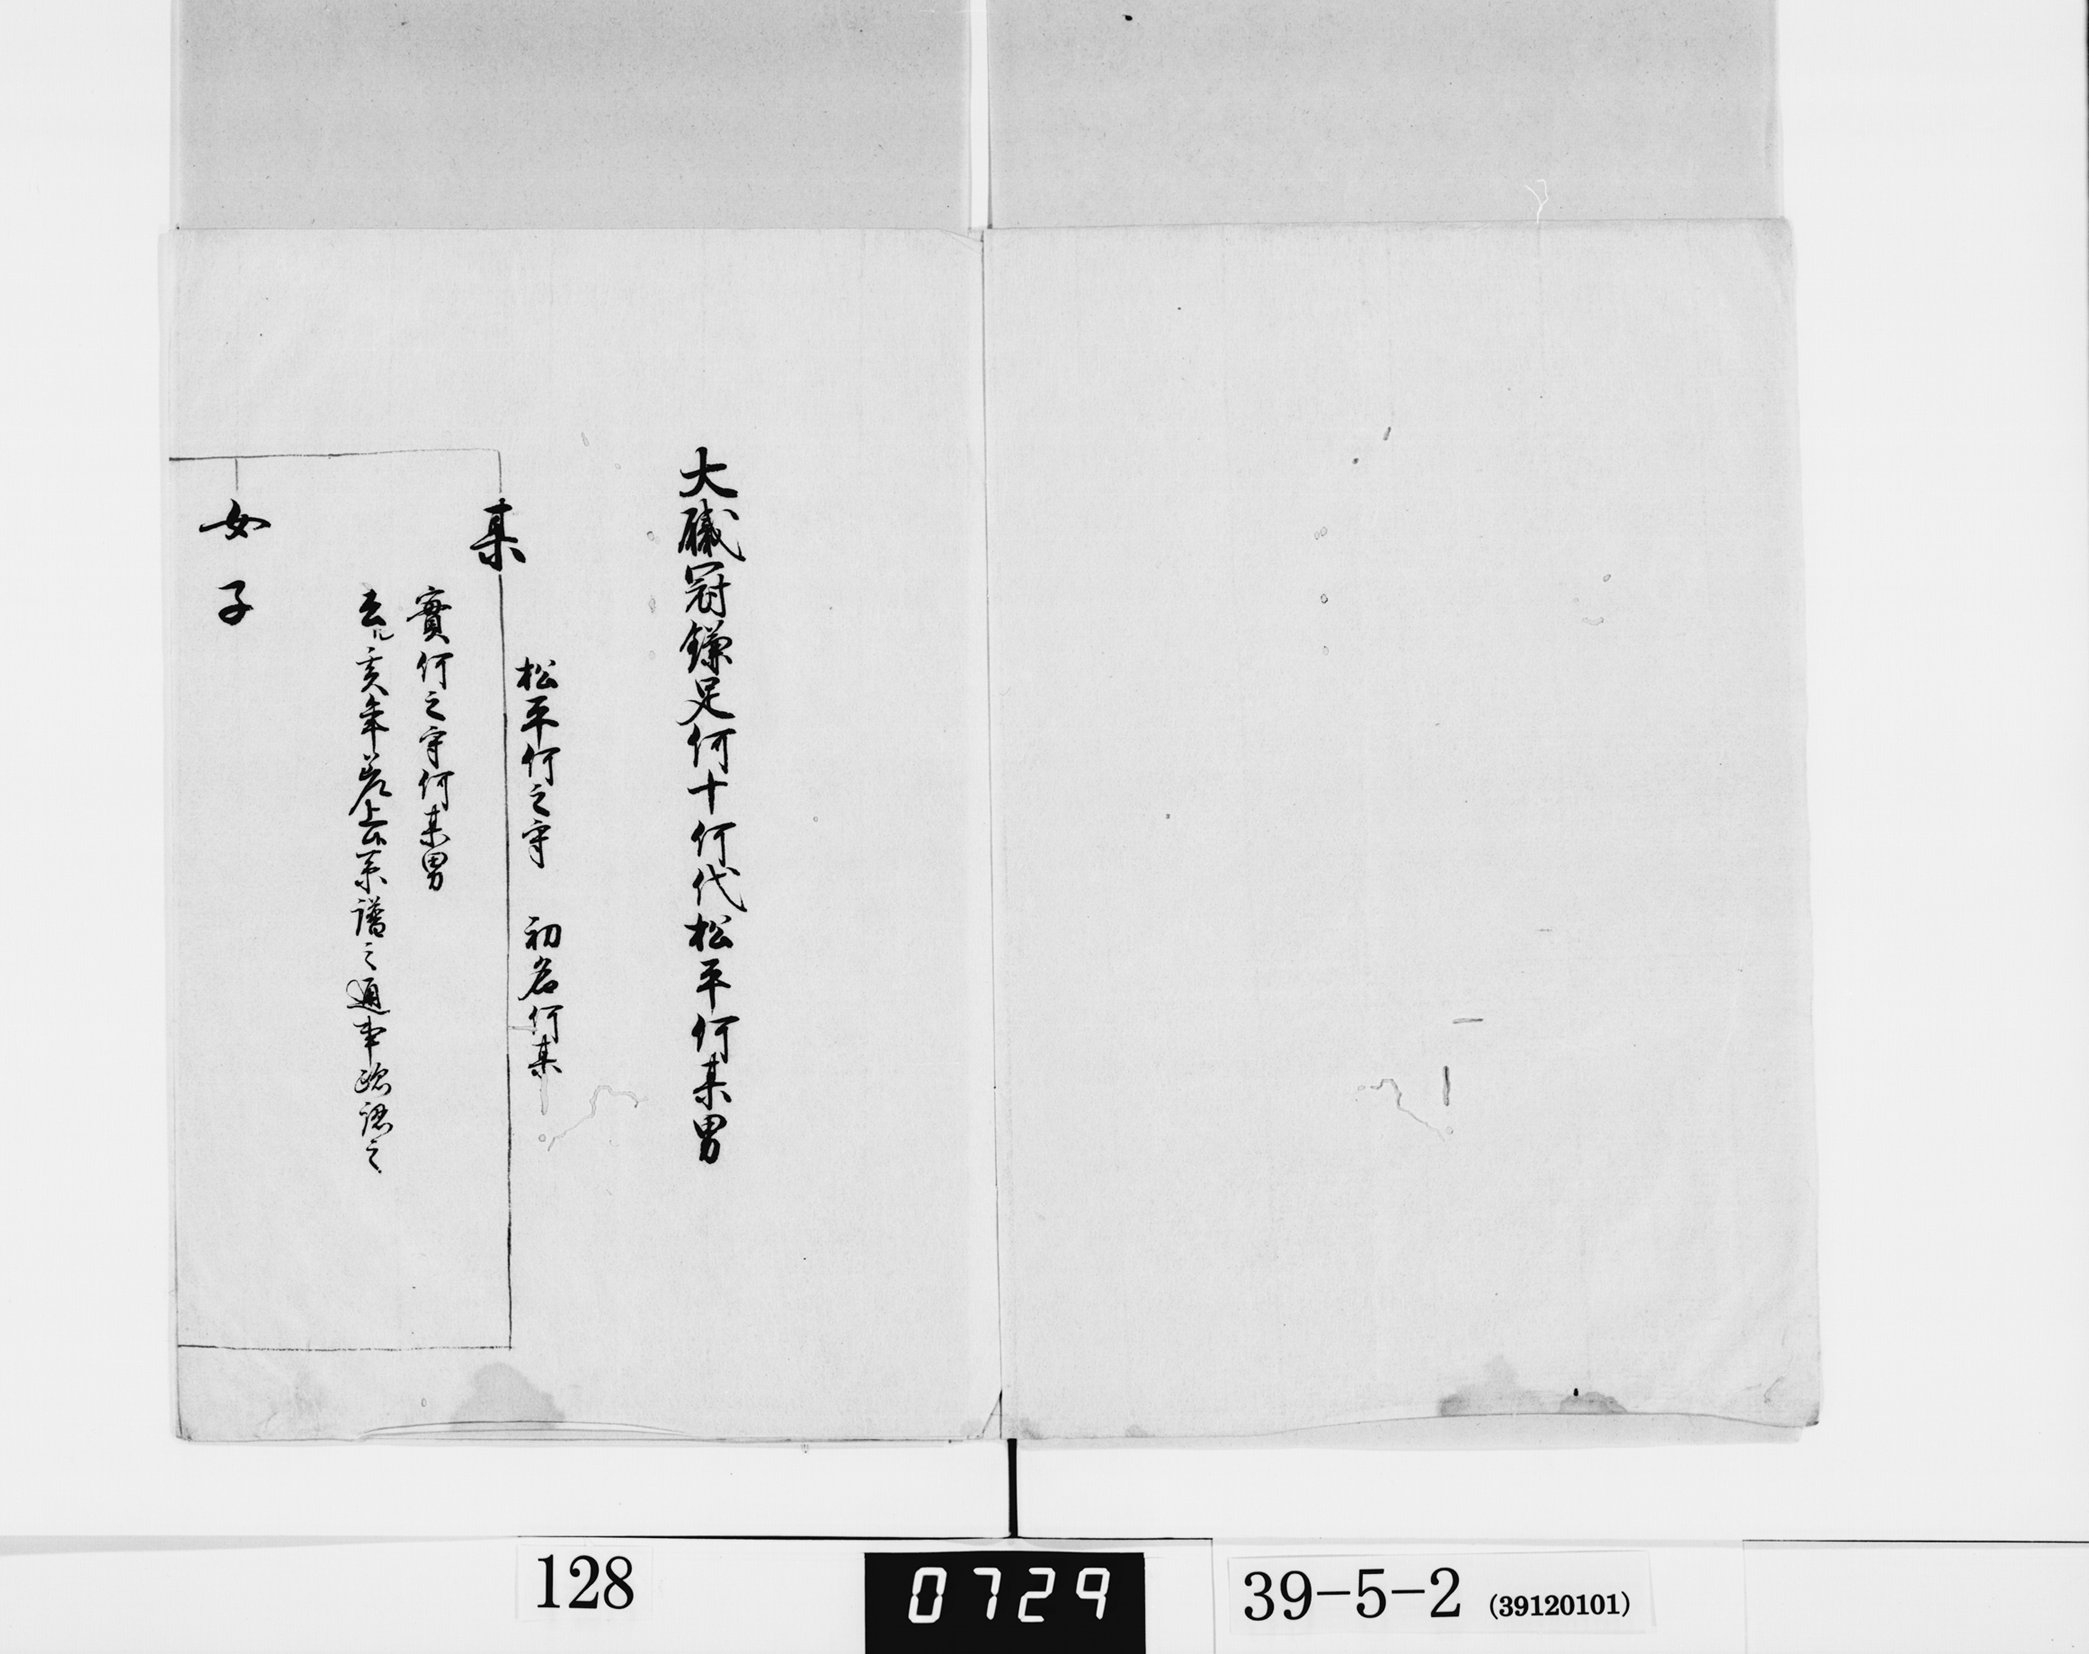 大職冠鎌足何十何代松平何某男
松平何之守　初名何某
某
實何之守何某男
去ル亥年差上候系譜之通車認之
女子
128
0729
39-5-2 (39120101)